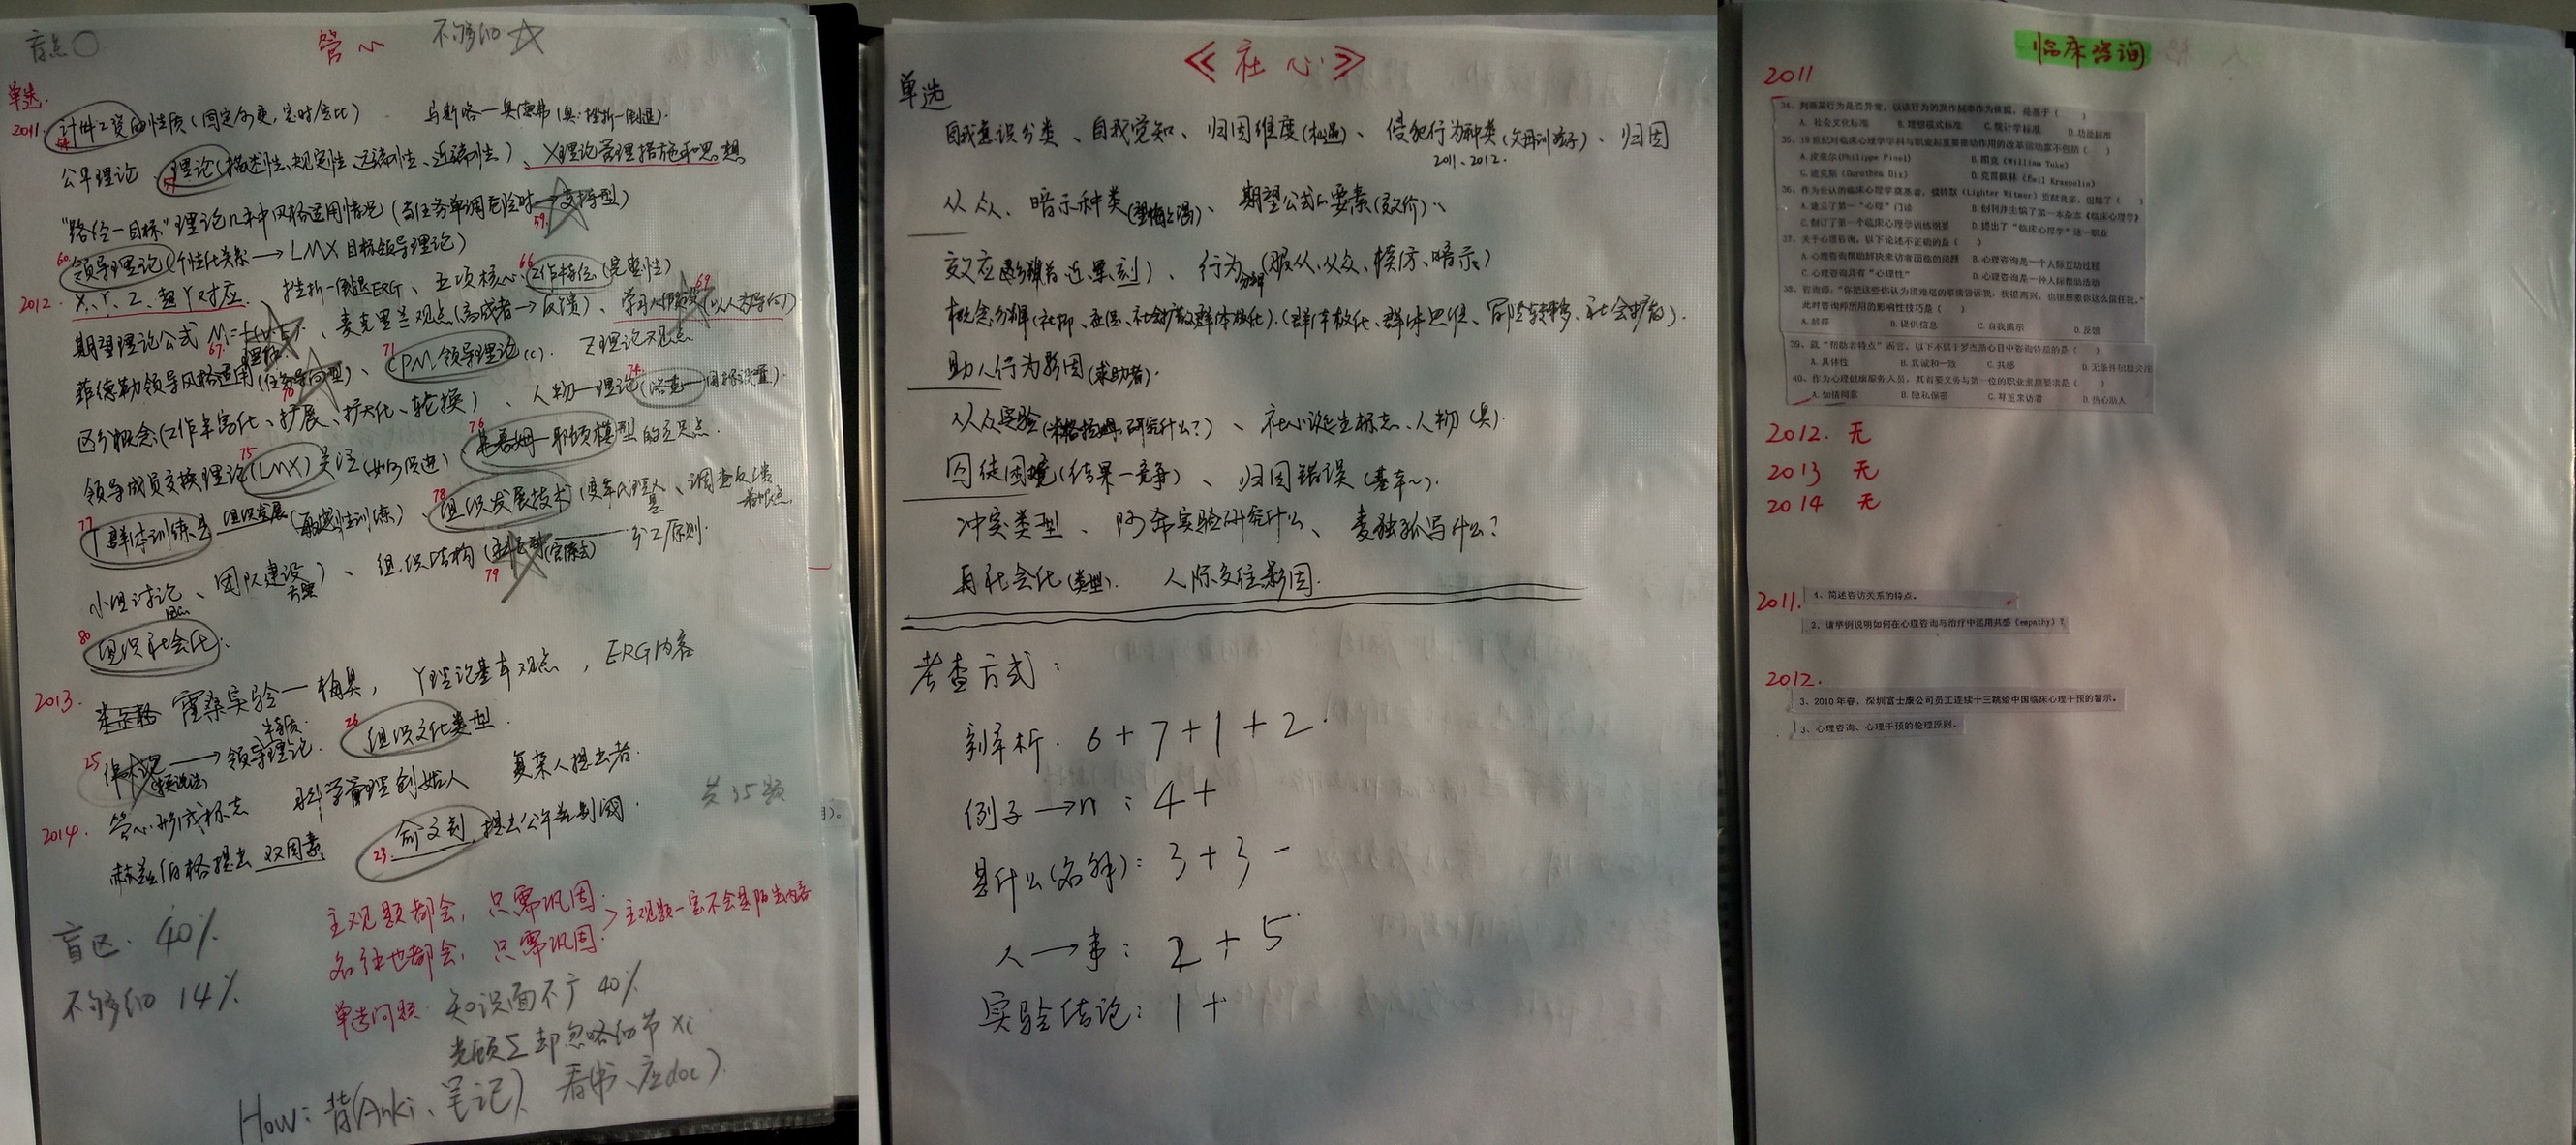 盲点○
管心
不够细☆
单选.
2011. 计件工资的性质(固定/可变,定时/定比) 马斯洛—奥德弗(奥:挫折—倒退).
公平理论、理论(描述性、规定性、远端性、近端性)、X理论管理措施和思想
"路径—目标"理论几种中风格适用情况(当任务单调危险时→支持型)
59.
60 领导理论(个性化关系→LMX目标领导理论)
2012. X、Y、Z、超Y对应、挫折—倒退ERG、五项核心工作特征(完整性)
66
69
期望理论公式 M= 、麦克里兰观点(高成者→反馈)、学习 (以人为导向)
67.
菲德勒领导风格适用(任务导向型)、CPM领导理论(c). Z理论观点
71
70
区分概念(工作丰富化、扩展、扩大化、轮换)、人物—理论(洛克—目标设置).
74
领导成员交换理论(LMX)关注(如何促进) —耶顿模型的立足点.
75
76
77 T群体训练是组织发展(敏感性训练) 组织发展技术(变革代理人、调查反馈
78
小组讨论、团队建设)、组织结构 (官僚式) 分工原则.
79
80 组织社会化.
2013. 霍桑实验—梅奥, Y理论基本观点, ERG内容
25 →领导理论. 组织文化类型.
26
2014. 管心形成标志 科学管理创始人 复杂人提出者.
赫兹伯格提出双因素 23. 俞文钊 提出公平差别阈.
共35题
盲区. 40%
不够细 14%
主观题都会, 只需巩固.
名徐也都会, 只需巩固. > 主观题一定不会是陌生内容
单选问题: 知识面不广 40%
光顾Σ却忽略细节xi
How: 背(Anki、笔记)、看(书、doc).
《社心》
单选
自我意识分类、自我觉知、归因维度(机遇)、侵犯行为种类(父母训孩子)、归因
2011、2012.
从众、暗示种类(望梅止渴)、期望公式的要素(效价)、
效应区分(首、近、晕、刻)、行为分辨(服从、从众、模仿、暗示)
概念分辨(社抑、社促、社会扩散、群体极化).(群体极化、群体思维、冒险转移、社会扩散).
助人行为影因(求助者).
从众实验(米格拉姆研究什么?)、社心诞生标志、人物(奥).
囚徒困境(结果—竞争)、归因错误(基本~).
冲突类型、阿希实验研究什么、麦独孤写什么?
再社会化(类型). 人际交往影因.
考查方式:
剖析. 6+7+1+2.
例子→n: 4+
是什么(名解): 3+3-
人→事: 2+5.
实验结论: 1+
临床咨询
2011
34、判断某行为是否异常,以该行为的发作频率作为依据,是基于( )
A. 社会文化标准 B.理想模式标准 C.统计学标准 D.功能标准
35、19世纪对临床心理学学科与职业起重要推动作用的改革运动家不包括( )
A.皮奈尔(Philippe Pinel) B.图克(William Tuke)
C.迪克斯(Dorothea Dix) D.克雷佩林(Emil Kraepelin)
36、作为公认的临床心理学奠基者,魏特默(Lighter Witmer)贡献良多,但除了( )
A.建立了第一"心理"门诊 B.创刊并主编了第一本杂志《临床心理学》
C.制订了第一个临床心理学训练纲要 D.提出了"临床心理学"这一职业
37、关于心理咨询,以下论述不正确的是( )
A.心理咨询帮助解决来访者面临的问题 B.心理咨询是一个人际互动过程
C.心理咨询具有"心理性" D.心理咨询是一种人际帮助活动
38、咨询师:"你把这些你认为很难堪的事情告诉我,我很高兴,也很感激你这么信任我."
此时咨询师所用的影响性技巧是( )
A.解释 B.提供信息 C.自我揭示 D.反馈
39、就"帮助者特点"而言,以下不属于罗杰斯心目中咨询特质的是( )
A.具体性 B.真诚和一致 C.共感 D.无条件积极关注
40、作为心理健康服务人员,其首要义务与第一位的职业素质要求是( )
A.知情同意 B.隐私保密 C.尊重来访者 D.热心助人
2012. 无
2013 无
2014 无
2011. 4、简述咨访关系的特点。
2、请举例说明如何在心理咨询与治疗中运用共感(empathy)?
2012.
3、2010年春,深圳富士康公司员工连续十三跳给中国临床心理干预的警示。
3、心理咨询、心理干预的伦理原则。